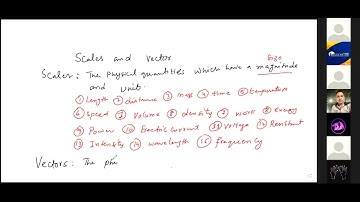 Scales and Vector
Size
Scales: The physical quantities which have a magnitude
and unit.
① Length ② distance ③ mass ④ time ⑤ temperature
⑥ Speed ⑦ Volume ⑧ density ⑨ work ⑧ Energy
⑨ Power ⑩ Electric current ⑪ Voltage ⑫ Resistant
⑬ Intensity ⑭ wavelength ⑮ frequency
Vectors: The phy